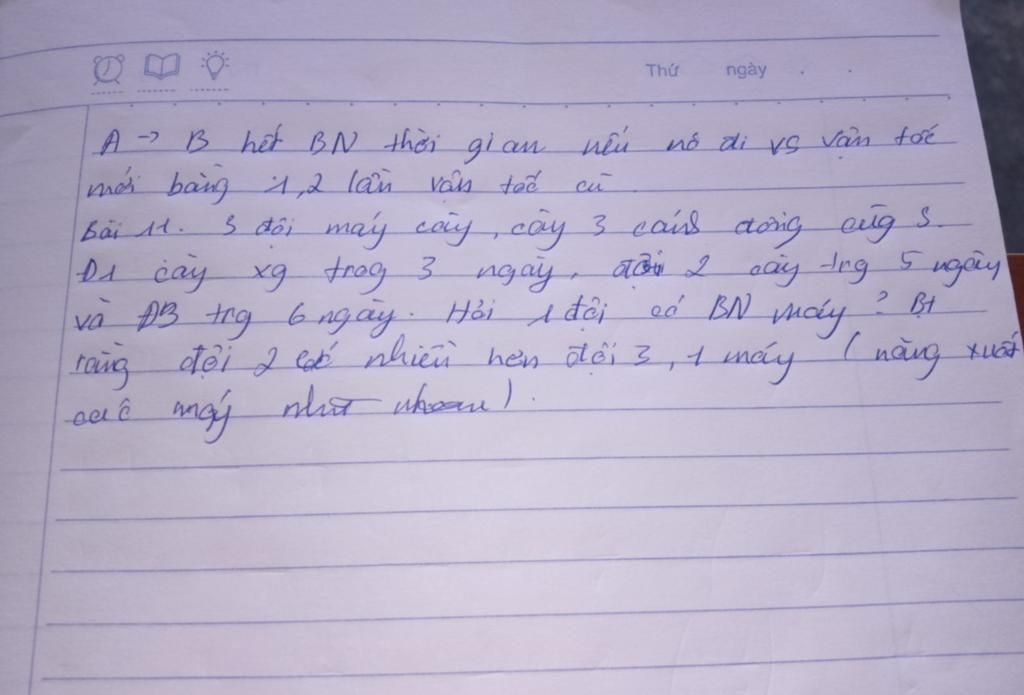 Thứ ngày
A → B hết BN thời gian nếu nó đi vs vận tốc
mới bằng 1,2 lần vận tốc cũ
Bài 11. 3 đội máy cày, cày 3 cánh đồng cùg S.
Đ1 cày xg trog 3 ngày, đội 2 cày trg 5 ngày
và Đ3 trg 6 ngày. Hỏi 1 đội có BN máy? Bt
rằng đội 2 có nhiều hơn đội 3, 1 máy (năng xuất
các máy như nhau).